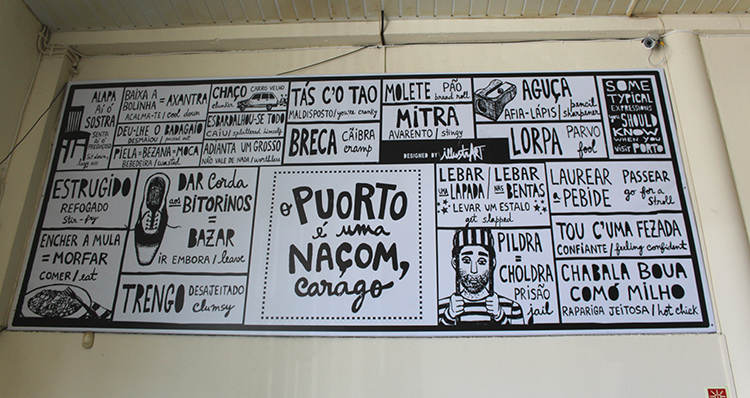 ALAPA
AÍ Ó
SOSTRA
SENTA
AÍ Ó
PREGUIÇOSO
sit down,
lazy ass
BAIXA A
BOLINHA = AXANTRA
ACALMA-TE / cool down
DEU-LHE O BADAGAIO
DESMAIOU / passed out
PIELA = BEZANA = MOCA
BEBEDEIRA / wasted
CHAÇO CARRO VELHO
clunker
ESBARDALHOU-SE TODO
CAIU / splattered himself
ADIANTA UM GROSSO
NÃO VALE DE NADA / worthless
TÁS C'O TAO
MALDISPOSTO / you're cranky
BRECA CÃIBRA
cramp
MOLETE PÃO
bread roll
MITRA
AVARENTO / stingy
DESIGNED BY illustrART
AGUÇA
AFIA-LÁPIS / pencil
sharpener
LORPA PARVO
fool
SOME
TYPICAL
EXPRESSIONS
YOU SHOULD
KNOW
WHEN YOU
VISIT PORTO
ESTRUGIDO
REFOGADO
Stir-fry
ENCHER A MULA
= MORFAR
COMER / eat
DAR CORDA
AOS BITORINOS
=
BAZAR
IR EMBORA / leave
TRENGO DESAJEITADO
clumsy
O PUORTO
é uma
NAÇOM,
carago
LEBAR
UMA LAPADA
LEBAR
NAS BENTAS
LEVAR UM ESTALO
get slapped
PILDRA
=
CHOLDRA
PRISÃO
jail
LAUREAR
A PEBIDE
PASSEAR
go for a
stroll
TOU C'UMA FEZADA
CONFIANTE / feeling confident
CHABALA BOUA
COMÓ MILHO
RAPARIGA JEITOSA / hot chick